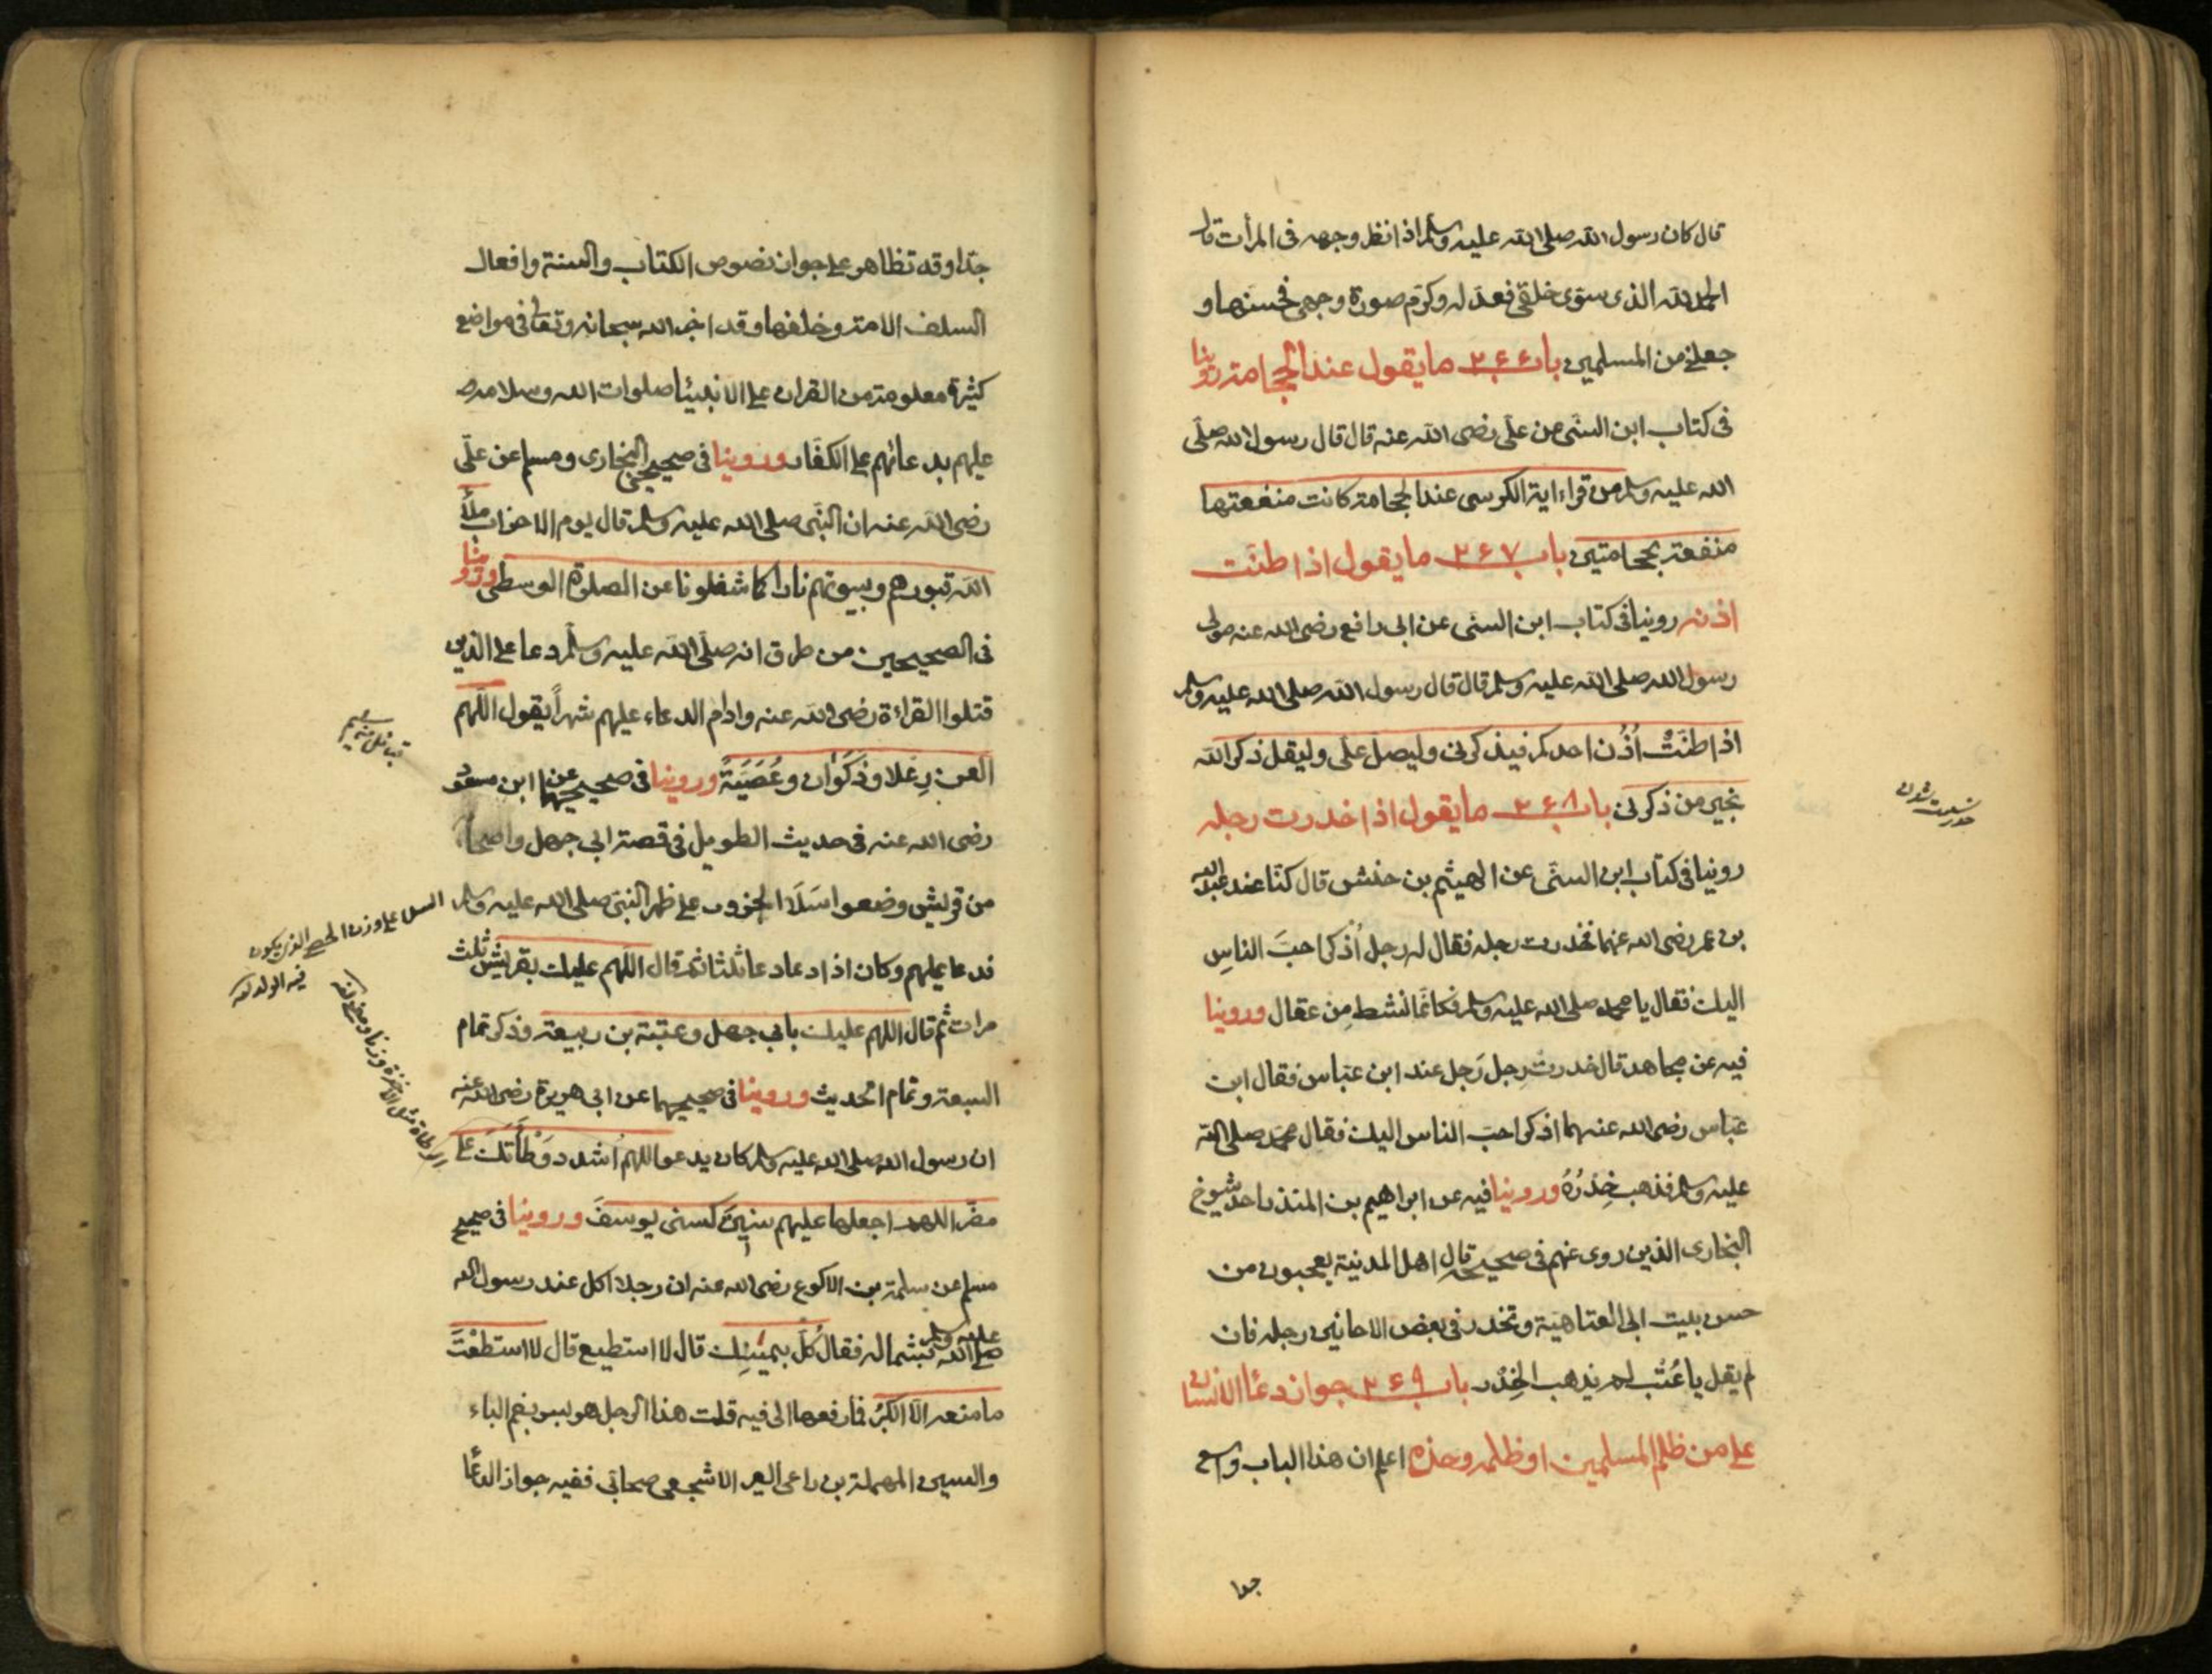 قال كان رسول الله صلى الله عليه وسلم اذا نظر وجهه فى المرأت قال
الحمد لله الذى سوّى خلقى فعدّله وكرّم صورة وجهى فحسنها و
جعلنى من المسلمين باب ٢٦٦ ما يقول عند الحجامة روينا
فى كتاب ابن السنّى عن علّى رضى الله عنه قال قال رسول الله صلّى
الله عليه وسلم من قراء اية الكرسى عند الحجامة كانت منفعتها
منفعة حجامتين باب ٢٦٧ ما يقول اذا طنّت
اذنه روينا فى كتاب ابن السنى عن ابى رافع رضى الله عنه مولى
رسول الله صلى الله عليه وسلم قال قال رسول الله صلى الله عليه وسلم
اذا طنّتْ اُذُن احدكم فيذكرنى وليصلّ علّى وليقل ذكر الله
بخير من ذكرنى باب ٢٦٨ ما يقول اذا خدرت رجله
روينا فى كتاب ابن السنّى عن الهيثم بن حنش قال كنّا عند عبد الله
بن عمر رضى الله عنهما فخدرت رجله فقال له رجل اُذكر احبَ الناسِ
اليك فقال يا محمد صلى الله عليه وسلم فكانّما نشط مِن عقال وروينا
فيه عن مجاهد قال خدرت رِجل رَجل عند ابن عبّاس فقال ابن
عبّاس رضى الله عنهما اذكر احبّ الناس اليك فقال محمّد صلى الله
عليه وسلم فذهب خِدْرُهُ وروينا فيه عن ابراهيم بن المنذر احد شيوخ
البخارى الذين روى عنهم فى صحيحه قال اهل المدينة يعجبون من
حسن بيت ابى العتاهيّة وتخدر فى بعض الاحايين رجله فان
لم يقل يا عُتْب لم يذهب الخِدْر باب ٢٦٩ جواز دعاء الانسان
على من ظلم المسلمين او ظلمه وحده اعلم ان هذا الباب واسع
جدا
جدّا وقد تظاهر على جواز نصوص الكتاب والسنة وافعال
السلف الامة وخلفها وقد اخبر الله سبحانه وتعالى فى مواضع
كثيرة معلومة من القران على الانبيئا صلوات الله وسلامه
عليهم بدعائهم على الكفّار وروينا فى صحيحى البخارى ومسلم عن علّى
رضى الله عنه ان النبّى صلى الله عليه وسلم قال يوم الاحزاب ملأَ
الله قبورهم وبيوتهم نارا كما شغلونا عن الصلوة الوسطى وروينا
فى الصحيحين من طرق انه صلّى الله عليه وسلّم دعا على الذين
قتلوا القراءة رضى الله عنه وادام الدعاء عليهم شهراً يقول اللّهم
العن رِعْلا وذَكَوْان وعُصَيَّةً وروينا فى صحيحيهما عن ابن مسعود
رضى الله عنه فى حديث الطويل فى قصة ابى جهل واصحابه
من قريش وضعوا سَلَا الجزور على ظهر النبّى صلى الله عليه وسلم
فدعا عليهم وكان اذا دعا دعا ثلثا ثم قال اللّهم عليك بقريش ثلث
مرات ثم قال اللهم عليك بابى جهل وعتبة بن ربيعة وذكر تمام
السبعة وتمام الحديث وروينا فى صحيحيهما عن ابى هريرة رضى الله عنه
ان رسول الله صلى الله عليه وسلم كان يدعو اللهمّ اشدد وَطْأَتَكَ على
مضَر اللهمّ اجعلها عليهم سنينَ كسنى يوسفَ وروينا فى صحيح
مسلم عن سلمة بن الاكوع رضى الله عنه ان رجلا اكل عند رسول الله
صلى الله عليه وسلم بشماله فقال كُلْ بيمينِك قال لا استطيع قال لا استطعْتَ
ما منعه الّا الكبْرُ فما رفعها الى فيه قلت هذا الرجل هو بسر بضم الباء
والسين المهملة بن راعى العير الاشجعى صحابّى ففيه جواز الدعاء
السلا على وزن الحصى الذى يكون
فيه الولد